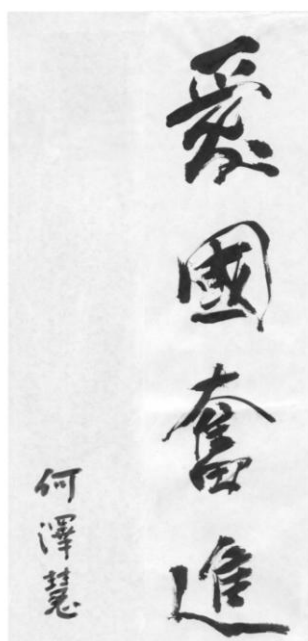 愛國奮進
何澤慧